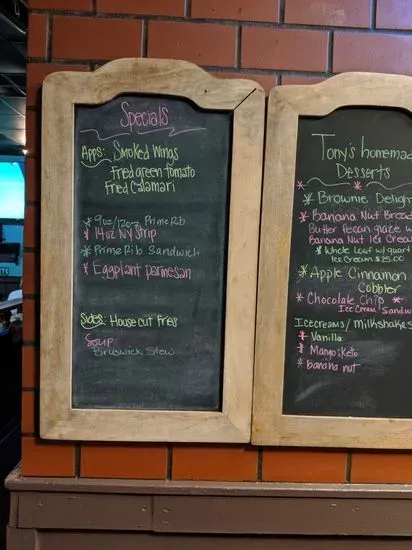 Specials
Apps: Smoked Wings
Fried green tomato
Fried Calamari
* 9oz/12oz Prime Rib
* 14oz NY Strip
* Prime Rib Sandwich
* Eggplant parmesan
Sides: House cut fries
Soup:
Bruswick Stew
Tony's homemad
Desserts
* Brownie Deligh
* Banana Nut Bread
Butter Pecan glaze w
Banana Nut Ice Crea
* Whole Loaf w/ quart
Ice Cream $25.00
* Apple Cinnamon
Cobbler
* Chocolate Chip *
Ice Cream Sandw
Icecreams/ milkshakes
* Vanilla
* Mango:Keto
* banana nut